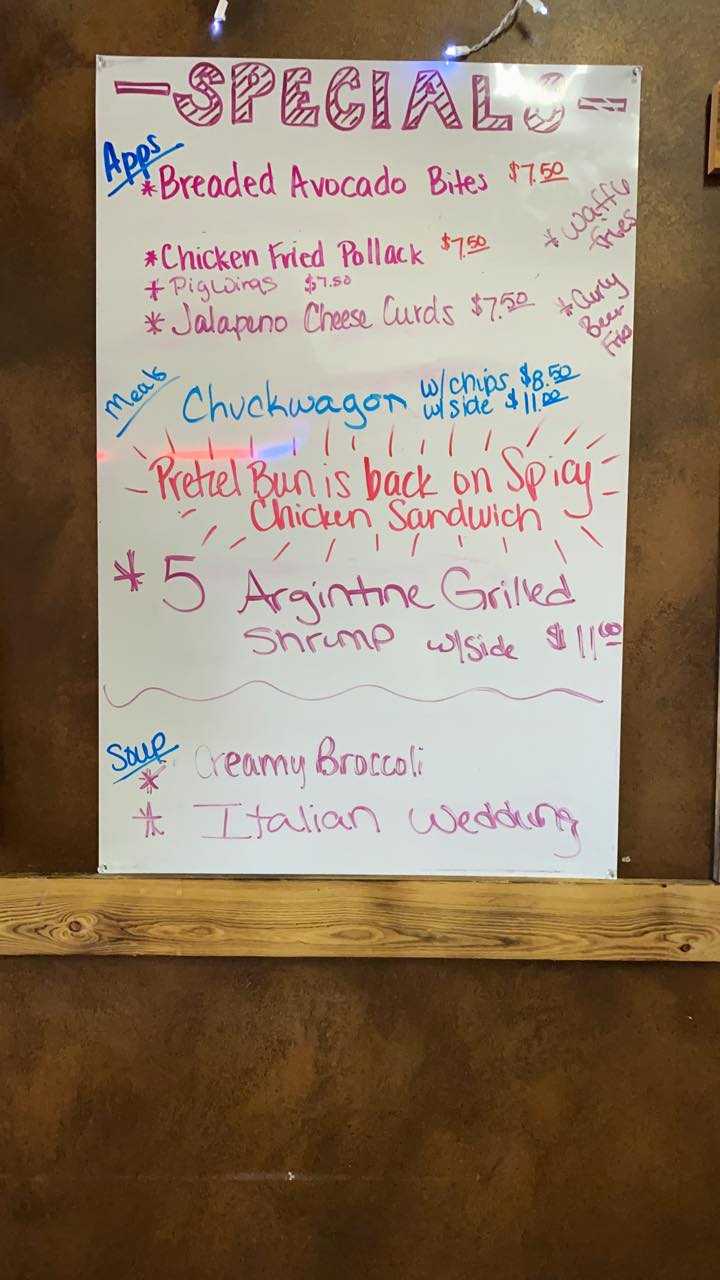 -SPECIALS-
Apps
*Breaded Avocado Bites $7.50
* Waffle
fries
*Chicken Fried Pollack $7.50
* Pigwings $7.50
* Jalapeno Cheese Curds $7.50
* Curly
Beer
Fries
Meals
Chuckwagon w/chips $8.50
w/side $11.00
Pretzel Bun is back on Spicy
Chicken Sandwich
* 5 Argintine Grilled
Shrimp w/side $11.00
Soup
* Creamy Broccoli
* Italian Wedding